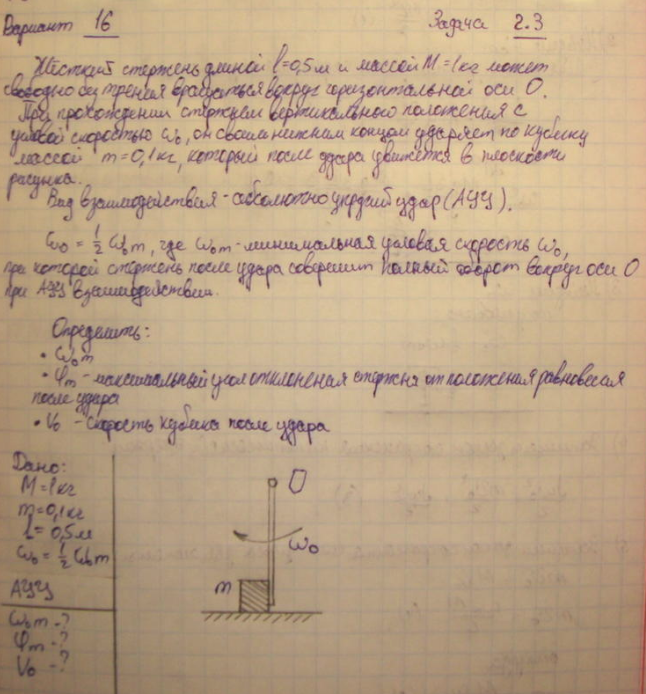 Вариант 16 Задача 2.3
Жёсткий стержень длиной l=0,5м и массой M=1кг может
свободно без трения вращаться вокруг горизонтальной оси O.
При прохождении стержнем вертикального положения с
угловой скоростью ω₀, он своим нижним концом ударяет по кубику
массой m=0,1кг, который после удара движется в плоскости
рисунка.
Вид взаимодействия - абсолютно упругий удар (АУУ).
ω₀ = ½ ω₀m, где ω₀m - минимальная угловая скорость ω₀,
при которой стержень после удара совершит полный оборот вокруг оси O
при АУУ взаимодействии.
Определить:
• ω₀m
• φm - максимальный угол отклонения стержня от положения равновесия
после удара
• V₀ - скорость кубика после удара
Дано:
M=1кг
m=0,1кг
l=0,5м
ω₀=½ω₀m
АУУ
ω₀m -?
φm -?
V₀ -?
O
ω₀
m